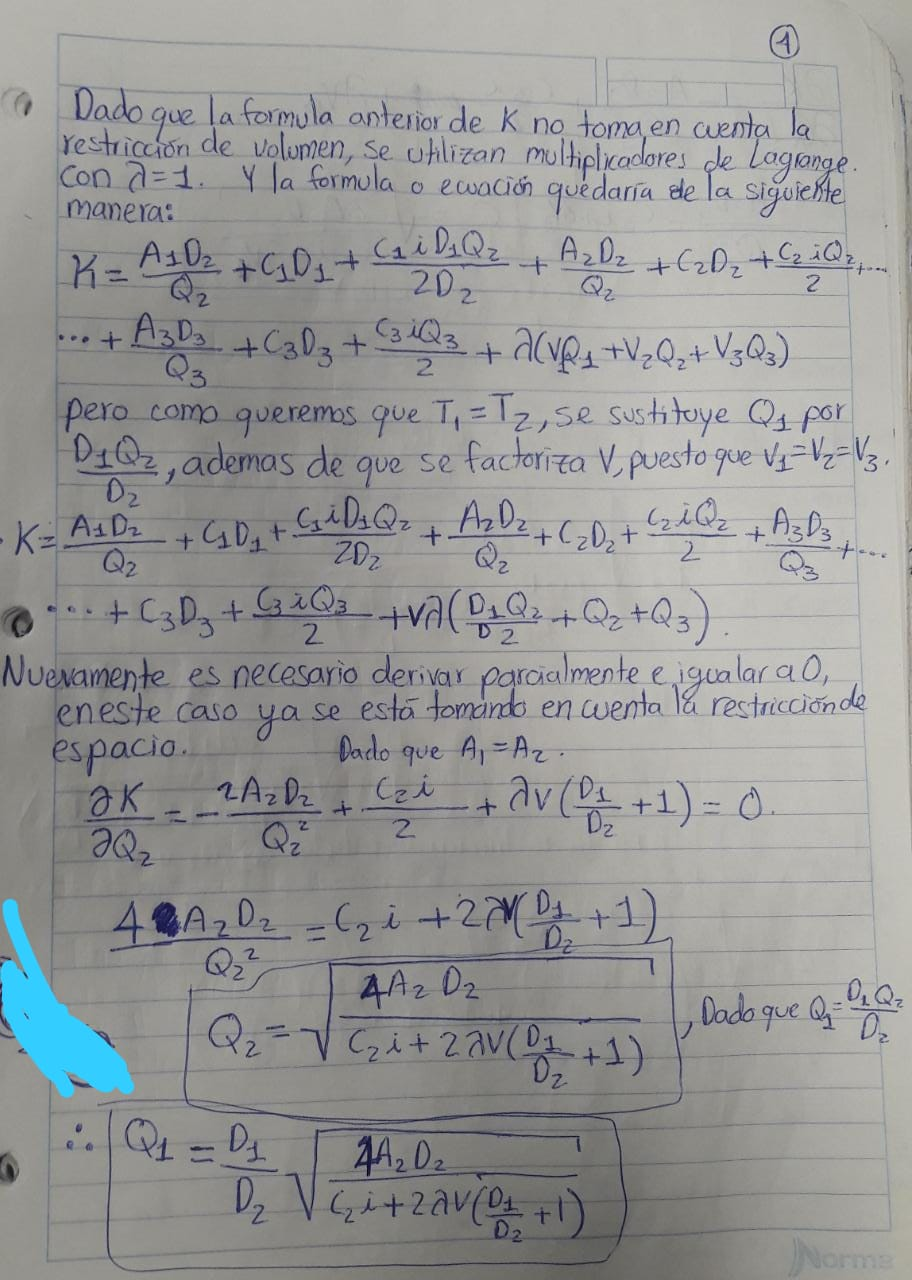 ①
Dado que la formula anterior de K no toma en cuenta la
restricción de volumen, se utilizan multiplicadores de Lagrange.
Con λ=1. Y la formula o ecuación quedaría de la siguiente
manera:
K = A₁D₂/Q₂ + C₁D₁ + C₁iD₁Q₂/2D₂ + A₂D₂/Q₂ + C₂D₂ + C₂iQ₂/2 +...
... + A₃D₃/Q₃ + C₃D₃ + C₃iQ₃/2 + λ(V₁Q₁ + V₂Q₂ + V₃Q₃)
pero como queremos que T₁ = T₂, se sustituye Q₁ por
D₁Q₂/D₂, ademas de que se factoriza V, puesto que V₁=V₂=V₃.
K = A₁D₂/Q₂ + C₁D₁ + C₁iD₁Q₂/2D₂ + A₂D₂/Q₂ + C₂D₂ + C₂iQ₂/2 + A₃D₃/Q₃ +...
... + C₃D₃ + C₃iQ₃/2 + Vλ(D₁Q₂/D2 + Q₂ + Q₃).
Nuevamente es necesario derivar parcialmente e igualar a 0,
en este caso ya se está tomando en cuenta la restricción de
espacio. Dado que A₁ = A₂.
∂K/∂Q₂ = -2A₂D₂/Q₂² + C₂i/2 + λV(D₁/D₂ + 1) = 0.
4A₂D₂/Q₂² = C₂i + 2λV(D₁/D₂ + 1)
Q₂ = √(4A₂D₂/(C₂i + 2λV(D₁/D₂ + 1))), Dado que Q₁ = D₁Q₂/D₂
∴ Q₁ = D₁/D₂ √(4A₂D₂/(C₂i + 2λV(D₁/D₂ + 1)))
Norma